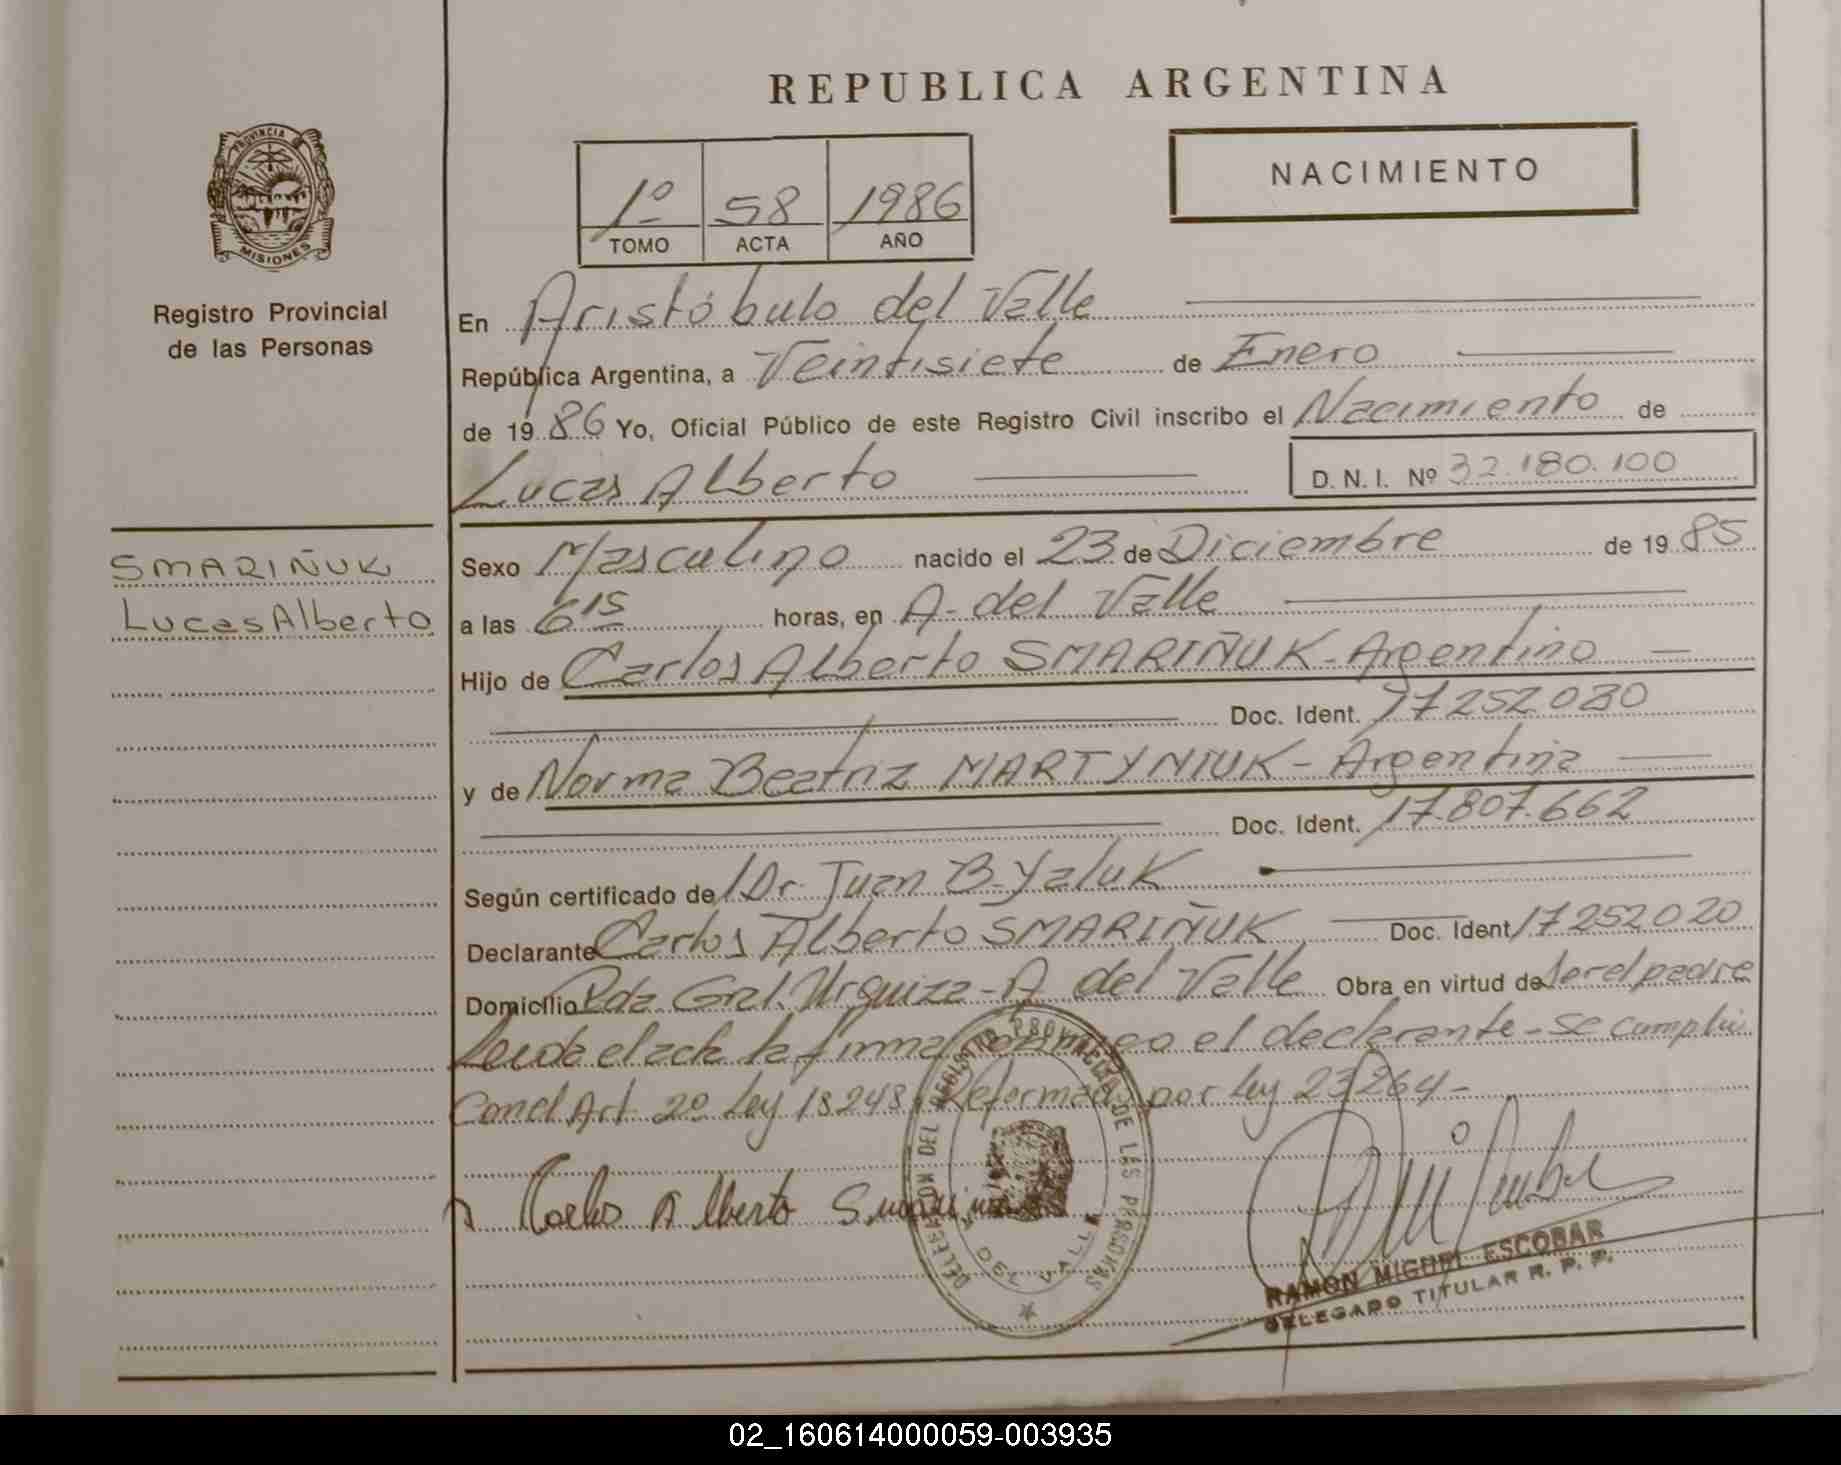 REPUBLICA ARGENTINA
PROVINCIA
MISIONES
Registro Provincial
de las Personas
1º 58 1986
TOMO ACTA AÑO
NACIMIENTO
En Aristóbulo del Valle
República Argentina, a Veintisiete de Enero
de 1986 Yo, Oficial Público de este Registro Civil inscribo el Nacimiento de
Lucas Alberto D. N. I. Nº 32.180.100
SMARIÑUK
Lucas Alberto
Sexo Masculino nacido el 23 de Diciembre de 1985
a las 6 15 horas, en A. del Valle
Hijo de Carlos Alberto SMARIÑUK - Argentino
Doc. Ident. 17252020
y de Norma Beatriz MARTYNIUK - Argentina
Doc. Ident. 17.807.662
Según certificado de Dr. Juan B. Yaluk
Declarante Carlos Alberto SMARIÑUK Doc. Ident 17252020
Domicilio Pda. Gral. Urquiza - A del Valle Obra en virtud de ser el padre
Leida el acta la firma el declarante - se cumplió
Con el Art 2º Ley 18248 Reformada por Ley 23264 -
Carlos Alberto
DEL REGISTRO PROVINCIAL DE LAS PERSONAS
DEL VALLE
RAMON MIGUEL ESCOBAR
DELEGADO TITULAR R. P. P.
02_160614000059-003935